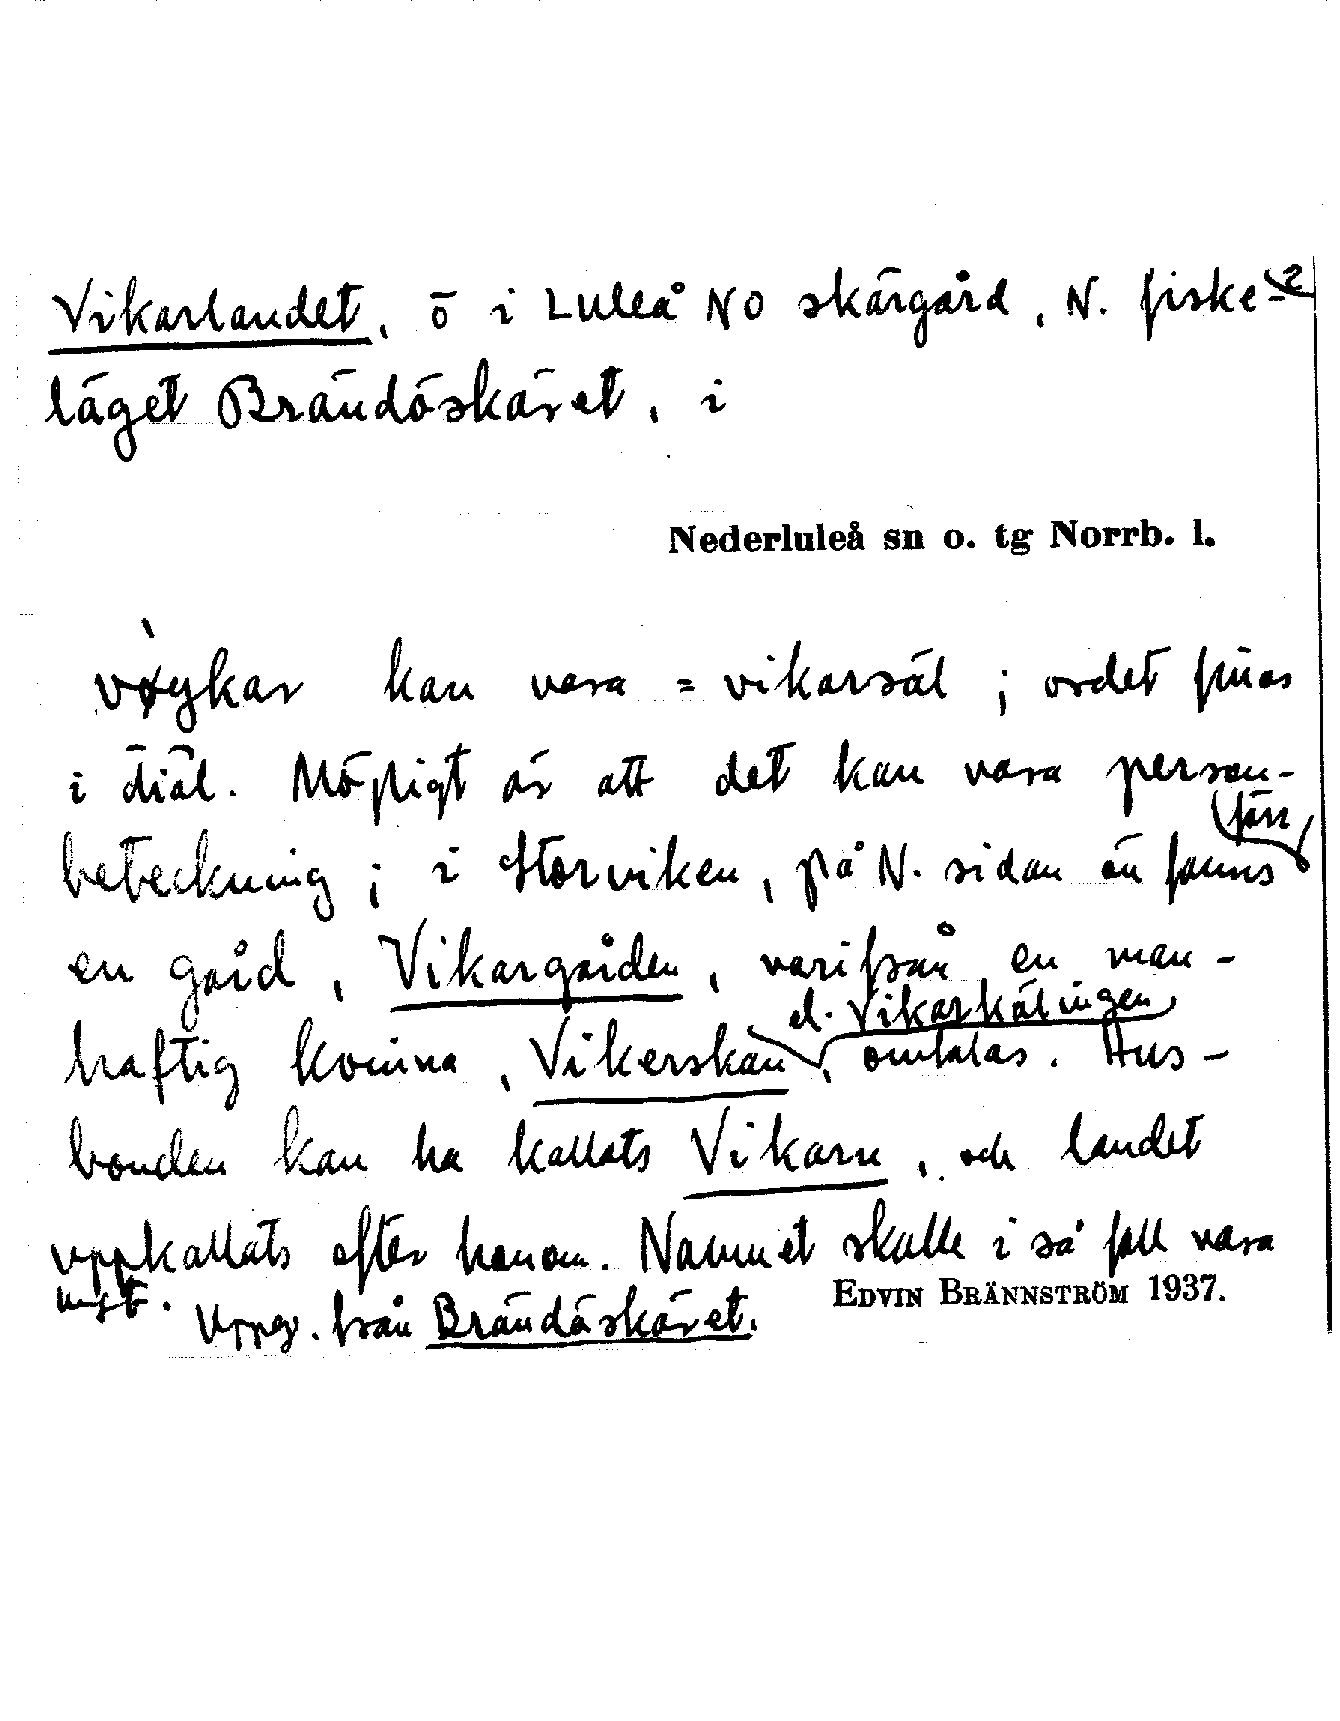 Vikarlandet, ö i Luleå NO skärgård, N. fiske-
läget Brändöskäret, i
Nederluleå sn o. tg Norrb. l.
kan vara = vikarsäl; ordet finns
i dial. Möjligt är att det kan vara person-
beteckning; i Storviken, på N. sidan ön fanns
förr
en gård, Vikargården, varifrån en man-
el. Vikarkälingen
haftig kvinna, Vikerskan, omtalas. Hus-
bonden kan ha kallats Vikarn, och landet
uppkallats efter honom. Namnet skulle i så fall vara
ungt. Uppg. från Brändöskäret.
EDVIN BRÄNNSTRÖM 1937.